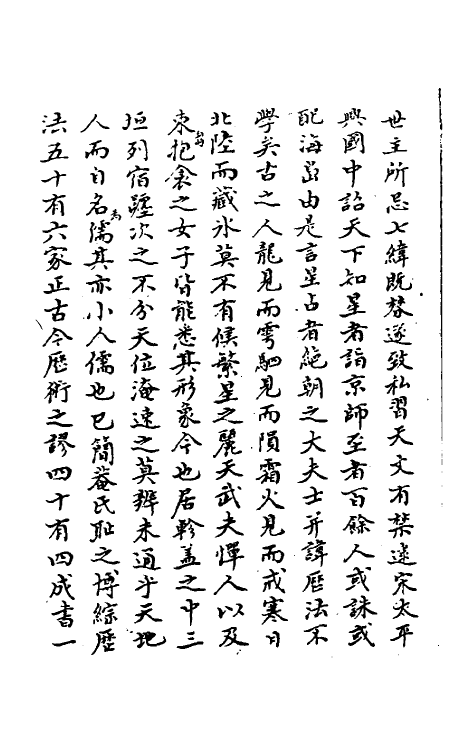 世主所忌七緯既替遂致私習天文有禁逮宋太平
興國中詔天下知星者詣京師至者百餘人或誅或
配海島由是言星占者絶朝之大夫士并諱厯法不
學矣古之人龍見而雩駟見而隕霜火見而戒寒日
北陸而藏氷莫不有候繁星之麗天武夫憚人以及
束抱衾之女子皆能悉其形象今也居軫盖之中三
垣列宿躔次之不分天位淹速之莫辨未通乎天地
人而自名為儒其亦小人儒也已簡菴氏恥之博綜厯
法五十有六家正古今厯術之謬四十有四成書一